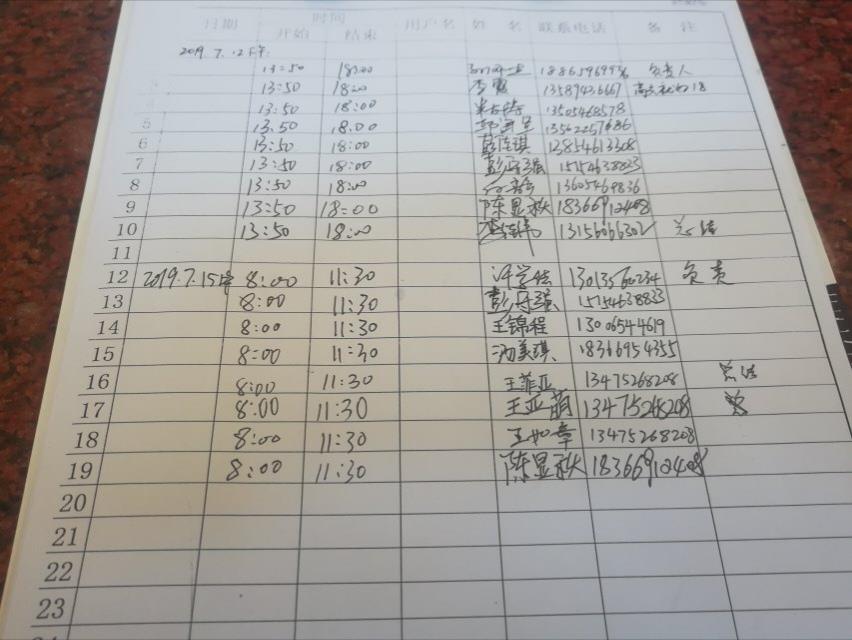 日期 时间 用户名 姓名 联系电话 备注
开始 结束
2019.7.12下午
13:50 18:00 负责人
13:50 18:00 李 13589436667
13:50 18:00 13505468578
5 13.50 18.00 13562257686
6 13:50 18:00 彭佳琪 13854613308
7 13:50 18:00 彭丹强
8 13:50 18:00 13605469836
9 13:50 18:00 陈显秋 18366912408
10 13:50 18:00 13156066302 总结
11
12 2019.7.15 8:00 11:30 许学法 13013560234 负责
13 8:00 11:30 彭丹强 15154638833
14 8:00 11:30 王锦程 13006544619
15 8:00 11:30 汤美琪 18366954355
16 8:00 11:30 王菲亚 13475268208 总结
17 8:00 11:30 王亚萌 13475268208
18 8:00 11:30 王如章 13475268208
19 8:00 11:30 陈显秋 18366912408
20
21
22
23